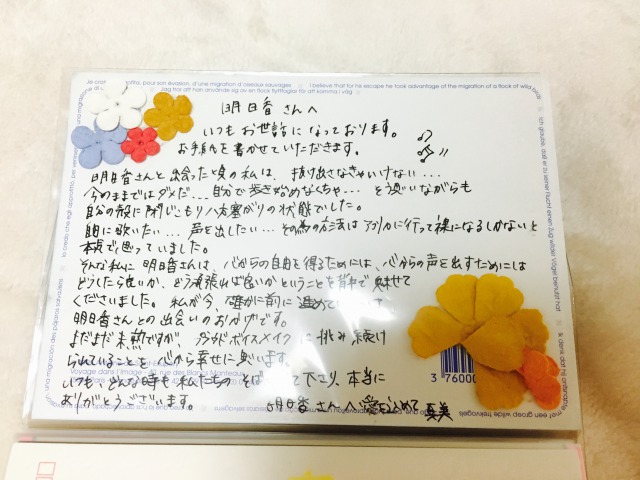 Je crois
pour son évasion, d'une migration d'oiseaux sauvages
I believe that for his escape he took advantage of the migration of a flock of wild birds
Jag tror att han använde sig av en flock flyttfåglar för att komma i väg
明日香さんへ
いつもお世話になっております。
お手紙を書かせていただきます。
明日香さんと出会った頃の私は、抜け出さなきゃいけない...
今のままではダメだ...自分で歩き始めなくちゃ...と思いながらも
自分の殻に閉じこもり八方塞がりの状態でした。
自由に歌いたい...声を出したい...その為の方法はアフリカに行って裸になるしかないと
本気で思っていました。
そんな私に明日香さんは、心からの自由を得るためには、心からの声を出すためには
どうしたら良いか、どう頑張れば良いかということを背中で魅せて
くださいました。私が今、確かに前に進めて
明日香さんとの出会いのおかげです。
まだまだ未熟ですが、ボイスメイクに挑み続け
られていることを心から幸せに思います。
いつもどんな時も私たちのそば て下さり、本当に
ありがとうございます。
明日香さんへ 愛を込めて 真美
3 76000